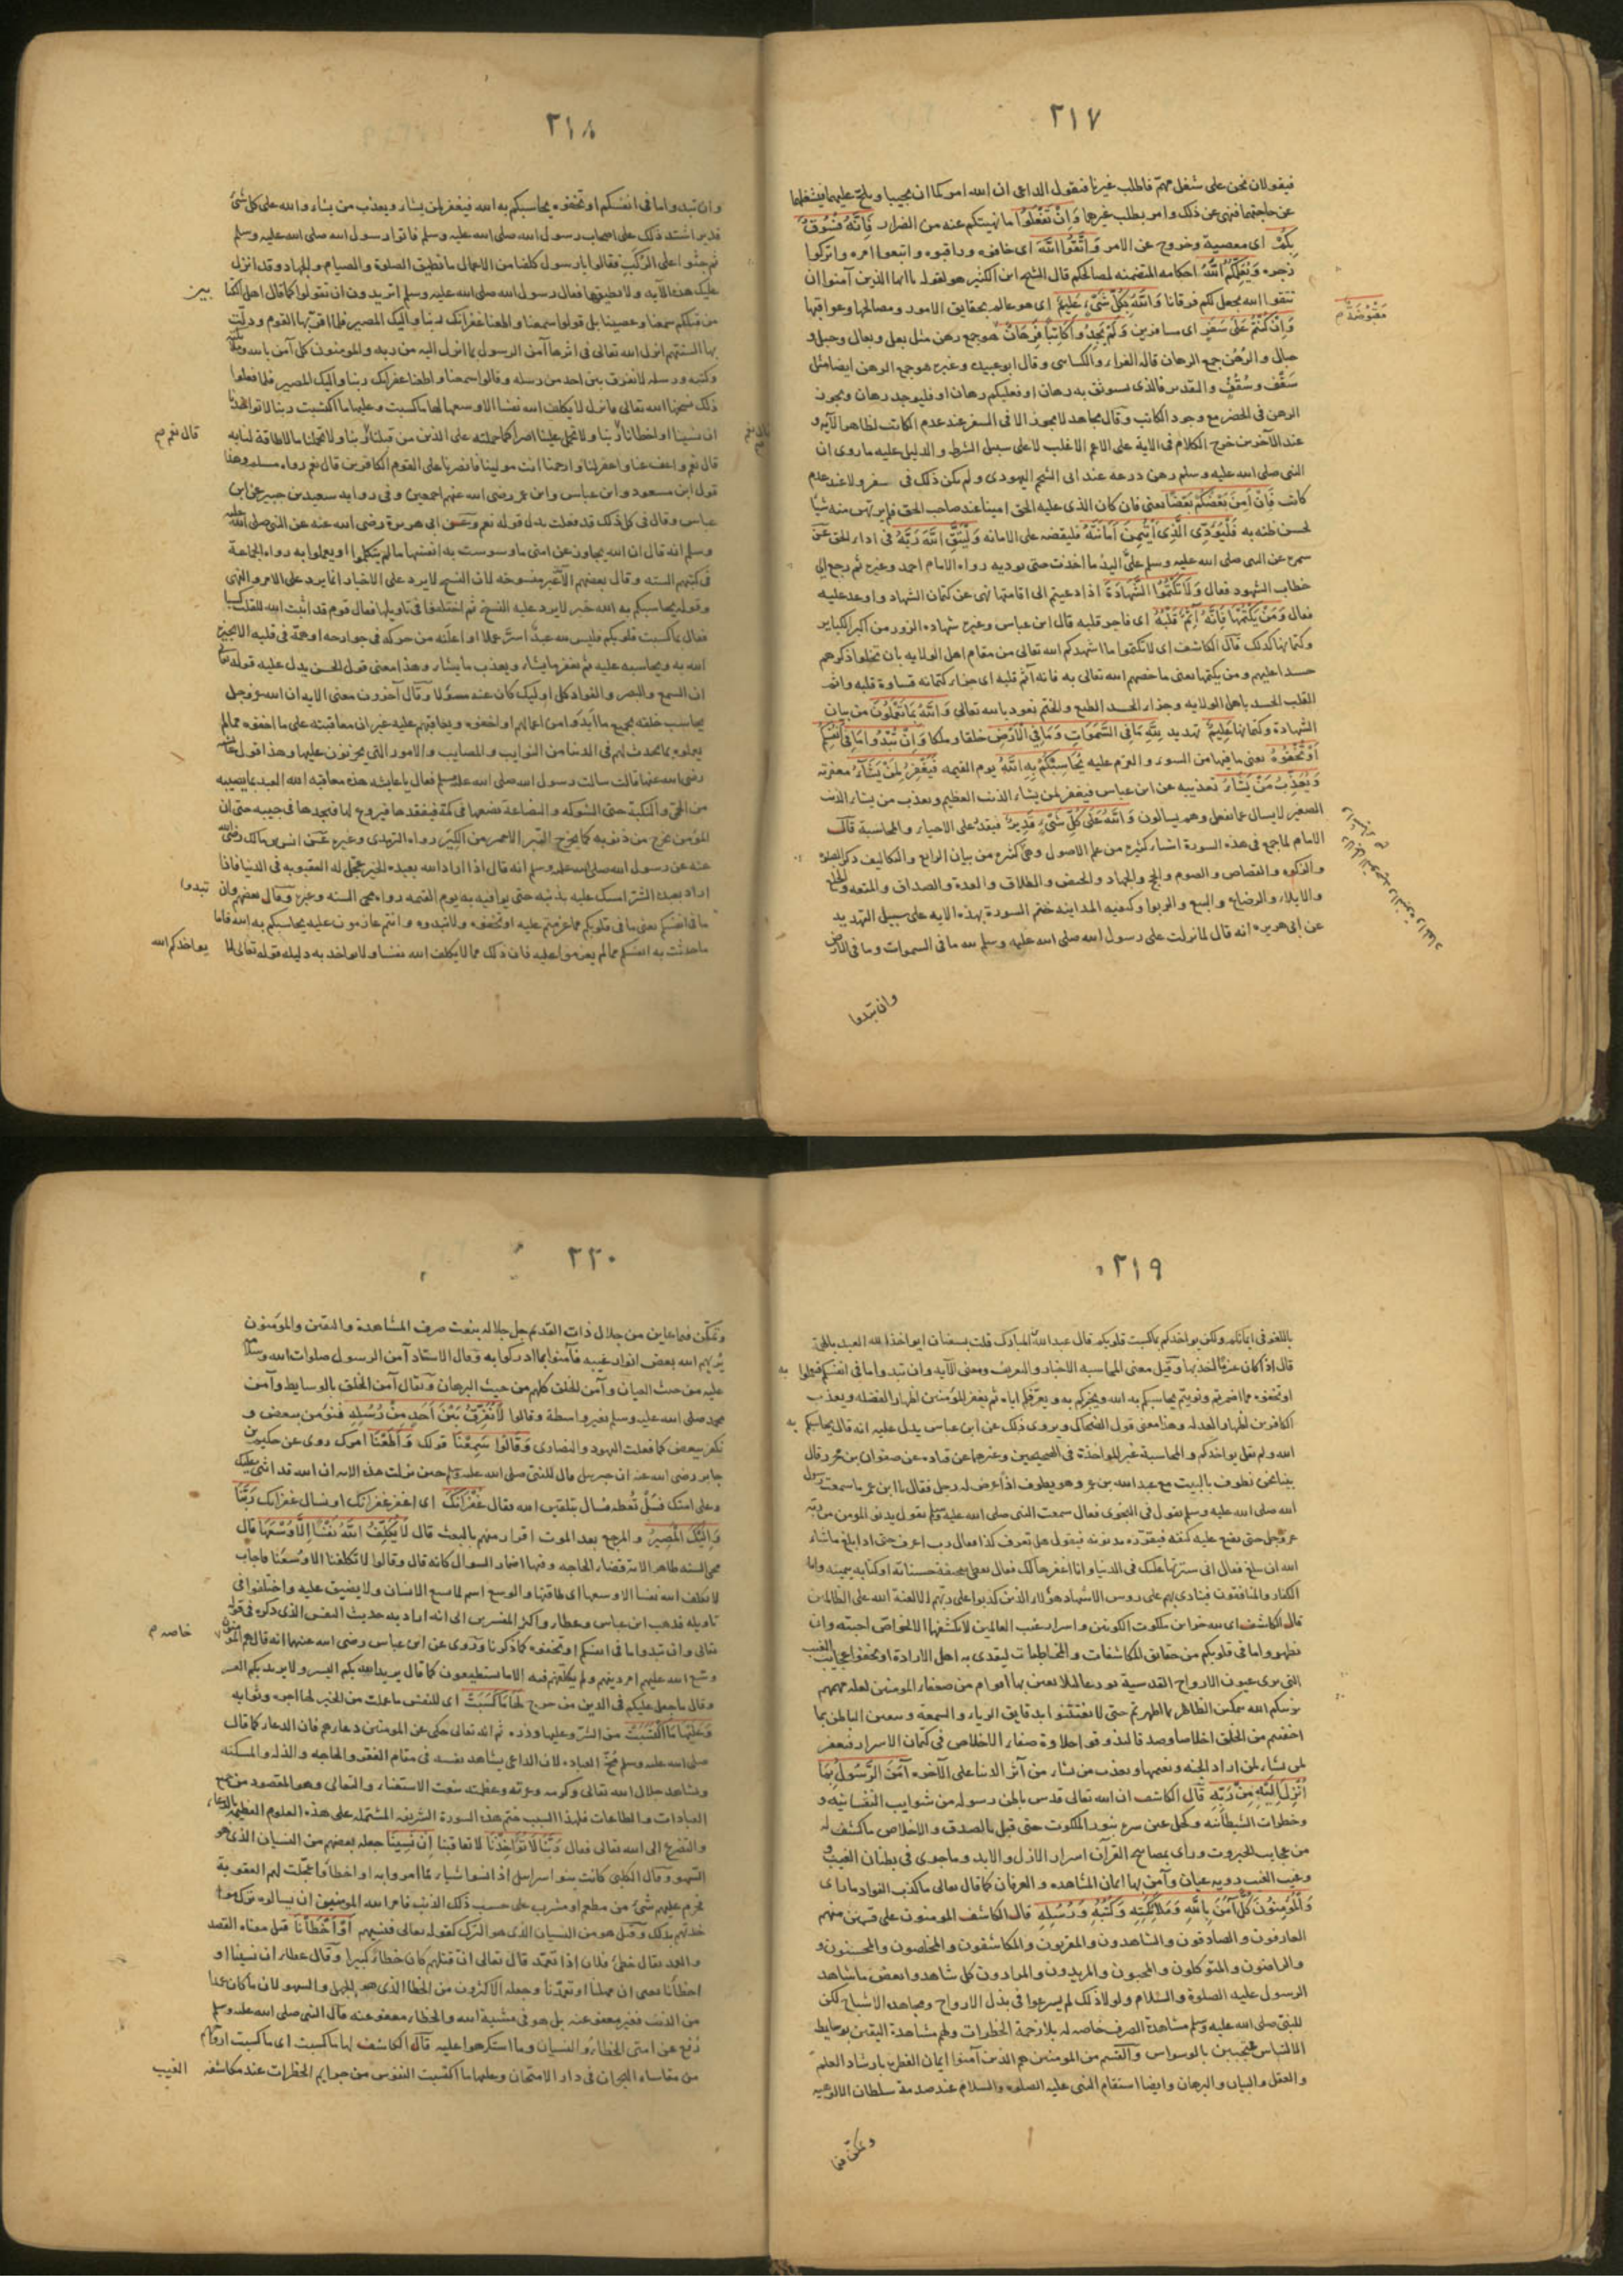 ٢١٧
فيقولان نحن على شغل مهم فاطلب غيرنا فيقول الداعى ان الله امركما ان تجيبا ويلح عليهما فيشغلهما
عن حاجتهما فنهى عن ذلك وامر بطلب غيرهما وَاِنْ تَفْعَلُوا ما نهيتكم عنه من الضرار فَاِنَّهُ فُسُوقٌ
بِكُمْ اى معصية وخروج عن الامر وَاتَّقُوا اللّٰهَ اى خافوه وراقبوه واتبعوا امره واتركوا
زجره وَيُعَلِّمُكُمُ اللّٰهُ احكامه المتضمنه لمصالحكم قال الشيخ ابن الكثير هو كقوله يا ايها الذين آمنوا ان
تتقوا الله يجعل لكم فرقانا وَاللّٰهُ بِكُلِّ شَىْءٍ عَلِيمٌ اى هو عالم بحقايق الامور ومصالحها وعواقبها
وَاِنْ كُنْتُمْ عَلَى سَفَرٍ اى مسافرين وَلَمْ تَجِدُوا كَاتِبًا فَرِهَانٌ هو جمع رهن مثل بغل وبغال وحبل و
مَقْبُوضَةٌ م
حبال والرهن جمع الرهان قاله الفراء والكساى وقال ابو عبيد وغيره هو جمع الرهن ايضا مثل
سَقْفٍ وسُقُفٍ والتقدير فالذى يستوثق به رهان او فعليكم رهان او فليوجد رهان ويجوز
الرهن فى الحضر مع وجود الكاتب وقال مجاهد لا يجوز الا فى السفر عند عدم الكاتب لظاهر الآيه و
عند الآخرين خرج الكلام فى الاية على الاعم الاغلب لا على سبيل الشرط والدليل عليه ما روى ان
النبى صلى الله عليه وسلم رهن درعه عند ابى الشحم اليهودى ولم يكن ذلك فى سفر ولا عند عدم
كاتب فَاِنْ اَمِنَ بَعْضُكُمْ بَعْضًا يعنى فان كان الذى عليه الحق امينا عند صاحب الحق فلم يرتهن منه شيًا
لحسن ظنه به فَلْيُؤَدِّ الَّذِى اؤْتُمِنَ اَمَانَتَهُ فليقضه على الامانه وَلْيَتَّقِ اللّٰهَ رَبَّهُ فى اداء الحق عن
سمرة عن النبى صلى الله عليه وسلم على اليد ما اخذت حتى يوديه رواه الامام احمد وغيره ثم رجع الى
خطاب الشهود فقال وَلَا تَكْتُمُوا الشَّهَادَةَ اذا دعيتم الى اقامتها نهى عن كتمان الشهاده واوعد عليه
فقال وَمَنْ يَكْتُمْهَا فَاِنَّهُ اٰثِمٌ قَلْبُهُ اى فاجر قلبه قال ابن عباس وغيره شهاده الزور من اكبر الكباير
وكتمانها كذلك قال الكاشف اى لا تكتموا ما اشهدكم الله تعالى من مقام اهل الولايه بان تجلوا ذكرهم
حسدا عليهم ومن يكتمها يعنى ما خصهم الله تعالى به فانه آثم قلبه اى جزاء كتمانه قساوة قلبه واثم
القلب الحسد باهل الولايه وجزاء الحسد الطبع والختم نعوذ بالله تعالى وَاللّٰهُ بِمَا تَعْمَلُونَ من بيان
الشهادة وكتمانها عَلِيمٌ تهديد لِلّٰهِ مَا فِى السَّمٰوَاتِ وَمَا فِى الْاَرْضِ خلقا وملكا وَاِنْ تُبْدُوا مَا فِى اَنْفُسِكُمْ
اَوْ تُخْفُوهُ يعنى ما فيها من السوء والعزم عليه يُحَاسِبْكُمْ بِهِ اللّٰهُ يوم القيمه فَيَغْفِرُ لِمَنْ يَشَاءُ مغفرته
وَيُعَذِّبُ مَنْ يَشَاءُ تعذيبه عن ابن عباس فيغفر لمن يشاء الذنب العظيم ويعذب من يشاء الذنب
الصغير لا يسال عما يفعل وهم يسالون وَاللّٰهُ عَلَى كُلِّ شَىْءٍ قَدِيرٌ فيقدر على الاحياء والمحاسبة قال
الامام لما جمع فى هذه السورة اشياء كثيره من علم الاصول وهى كثيره من بيان الشرايع والتكاليف ذكر الصلوة
والزكوه والقصاص والصوم والحج والجهاد والحيض والطلاق والعدة والصداق والمتعه والخلع
والايلاء والرضاع والبيع والربوا وكيفيه المداينه ختم السورة بهذه الايه على سبيل التهديد
عن ابى هريره انه قال لما نزلت على رسول الله صلى الله عليه وسلم لله ما فى السموات وما فى الارض
وان تبدوا
٢١٨
وان تبدوا ما فى انفسكم او تخفوه يحاسبكم به الله فيغفر لمن يشاء ويعذب من يشاء والله على كل شىء
قدير اشتد ذلك على اصحاب رسول الله صلى الله عليه وسلم فاتوا رسول الله صلى الله عليه وسلم
ثم جثوا على الركب فقالوا يا رسول كلفنا من الاعمال ما نطيق الصلوة والصيام والجهاد وقد انزل
عليك هذه الآيه ولا نطيقها فقال رسول الله صلى الله عليه وسلم اتريدون ان تقولوا كما قال اهل الكتا بين
من قبلكم سمعنا وعصينا بل قولوا سمعنا واطعنا غفرانك ربنا واليك المصير فلما اقرأها القوم وذلت
بها السنتهم انزل الله تعالى فى اثرها آمن الرسول بما انزل اليه من ربه والمومنون كل آمن بالله وملائكته
وكتبه ورسله لا نفرق بين احد من رسله وقالوا سمعنا واطعنا غفرانك ربنا واليك المصير فلما فعلوا
ذلك نسخها الله تعالى فانزل لا يكلف الله نفسا الا وسعها لها ما كسبت وعليها ما اكتسبت ربنا لا تواخذنا
ان نسينا او اخطانا ربنا ولا تحمل علينا اصرا كما حملته على الذين من قبلنا ربنا ولا تحملنا ما لا طاقة لنا به
قال نعم م
قال نعم واعف عنا واغفر لنا وارحمنا انت مولينا فانصرنا على القوم الكافرين قال نعم رواه مسلم وهذا
قول ابن مسعود وابن عباس وابن عمر رضى الله عنهم اجمعين وفى روايه سعيد بن جبير عن ابن
عباس وقال فى كل ذلك قد فعلت بدل قوله نعم وعن ابى هريرة رضى الله عنه عن النبى صلى الله عليه
وسلم انه قال ان الله يجاوز عن امتى ما وسوست به انفسها ما لم يتكلموا او يعملوا به رواه الجماعة
فى كتبهم السته وقال بعضهم الآيه غير منسوخه لان النسخ لا يرد على الاخبار انما يرد على الامر والنهى
وقوله يحاسبكم به الله خبر لا يرد عليه النسخ ثم اختلفوا فى تاويلها فقال قوم قد اثبت الله للقلب كسبا
فقال بما كسبت قلوبكم فليس لله عبد اسرّ عملا او اعلنه من حركه فى جوارحه او همة فى قلبه الا يخبره
الله به ويحاسبه عليه ثم يغفر ما يشاء ويعذب ما يشاء وهذا معنى قول الحسن يدل عليه قوله تعالى
ان السمع والبصر والفواد كل اوليك كان عنه مسؤلا وقال آخرون معنى الايه ان الله عز وجل
يحاسب خلقه بجميع ما ابدَوا من اعمالهم او اخفوه ويعاقبهم عليه غير ان معاقبته على ما اخفوه مما لم
يعملوه بما يحدث لهم فى الدنيا من النوايب والمصايب والامور التى يحزنون عليها وهذا قول عايشه
رضى الله عنها قالت سالت رسول الله صلى الله عليه وسلم فقال يا عايشه هذه معاقبه الله العبد بما يصيبه
من الحمى والنكبة حتى الشوكه والبضاعة يضعها فى كمه فيفقدها فيروع لها فيجدها فى جيبه حتى ان
المؤمن يخرج من ذنوبه كما يخرج التبر الاحمر من الكير رواه الترمذى وغيره عن انس بن مالك رضى الله
عنه عن رسول الله صلى الله عليه وسلم انه قال اذا اراد الله بعبده الخير عجل له العقوبه فى الدنيا فاذا
اراد بعبده الشر امسك عليه بذنبه حتى يوافيه به يوم القيمه رواه محى السنه وغيره وقال بعضهم وان تبدوا
ما فى انفسكم يعنى ما فى قلوبكم مما عزمتم عليه او تخفوه ولا تبدوه وانتم عازمون عليه يحاسبكم به الله فاما
ما حدثت به انفسكم مما لم يعزموا عليه فان ذلك مما لا يكلف الله نفسا ولا يواخذ به دليله قوله تعالى لا يواخذكم الله
٢١٩
باللغو فى ايمانكم ولكن يواخذكم بما كسبت قلوبكم قال عبد الله المبارك قلت لسفيان ايواخذ الله العبد بالهمة
قال اذا كان عزمًا اخذ بها وقيل معنى المحاسبه الاخبار والتعريف ومعنى الآيه وان تبدوا ما فى انفسكم فتعملوا به
او تخفوه مما اضمرتم ونويتم يحاسبكم به الله ويخبركم به ويعرفكم اياه ثم يغفر للمؤمنين اظهارا لفضله ويعذب
الكافرين اظهارا لعدله وهذا معنى قول الضحاك ويروى ذلك عن ابن عباس يدل عليه انه قال يحاسبكم به
الله ولم يقل يواخذكم والمحاسبة غير المواخذة فى الصحيحين وغيرهما عن قتاده عن صفوان بن محرز قال
بينا نحن نطوف بالبيت مع عبد الله بن عمر وهو يطوف اذا عرض له رجل فقال يا ابن عمر ما سمعت رسول
الله صلى الله عليه وسلم يقول فى النجوى فقال سمعت النبى صلى الله عليه وسلم يقول يدنو المومن من ربه
عز وجل حتى يضع عليه كنفه فيقرره بذنوبه فيقول هل تعرف كذا فقال رب اعرف حتى اذا بلغ ماشاء
الله ان يبلغ فقال انى سترتها عليك فى الدنيا وانا اغفرها لك فقال يعطى صحيفة حسناته او كتابه بيمينه واما
الكفار والمنافقون فينادى بهم على روس الاشهاد هؤلاء الذين كذبوا على ربهم الا لعنة الله على الظالمين
قال الكاشف اى لله خزاين ملكوت الكونين واسرار غيب العالمين لا يكشفها الا لخواص احبته وان
تظهروا ما فى قلوبكم من حقايق المكاشفات والمخاطبات ليقتدى به اهل الارادة او تخفوا عجايب الغيب
التى يرى عيون الارواح القدسية نورها لئلا يفتن بها اقوام من ضعفاء المومنين لعله فهمهم
يزكيكم الله بتمكين الظاهر بما اظهرتم حتى لا تفتتنوا بدقايق الرياء والسمعه
اخفيتم من الخلق اخلاصا وصدقا لتذوقوا حلاوة صفاء الاخلاص فى كتمان الاسرار فيغفر
لمن يشاء لمن اراد الجنه ونعيمها ويعذب من يشاء من آثر الدنيا على الآخره اٰمَنَ الرَّسُولُ بِمَا
اُنْزِلَ اِلَيْهِ مِنْ رَبِّهِ قال الكاشف ان الله تعالى قدس باطن رسوله من شوايب النفسانيه و
وخطرات الشيطانيه وكحل عين سره بنور الملكوت حتى قبل بالصدق والاخلاص ما كشف له
من عجايب الجبروت ورأى بمصابيح القرآن اسرار الازل والابد وما جرى فى بطنان الغيب و
وغيب الغيب رويه عيان وآمن بها ايمان المشاهده والعرفان كما قال تعالى ما كذب الفواد ما راى
وَالْمُؤْمِنُونَ كُلٌّ اٰمَنَ بِاللّٰهِ وَمَلٰئِكَتِهِ وَكُتُبِهِ وَرُسُلِهِ قال الكاشف المومنون على قسمين منهم
العارفون والصادقون والشاهدون والمقربون والمكاشفون والمخلصون والمحسنون و
والراضون والمتوكلون والمحبون والمريدون والمرادون كل شاهدوا بعض ما شاهد
الرسول عليه الصلوة والسلام ولولا ذلك لم يسرعوا فى بذل الارواح ومجاهده الاشباح لكن
للنبى صلى الله عليه وسلم مشاهدة الصرف خاصه له بلا زحمة الخطرات ولهم مشاهدة اليقين بوسايط
الالتباس محتجبين بالوسواس والقسم من المومنين هم الذين آمنوا ايمان الفطره بارشاد العلم
والعقل والبيان والبرهان وايضا استقام النبى عليه الصلوه والسلام عند صدمة سلطان الالوهيه
وتمكن فيما
٢٢٠
وتمكن فيما عاين من جلال ذات القديم جل جلاله بنعت صرف المشاهدة واليقين والمؤمنون
يريهم الله بعض انوار غيبه فآمنوا بما ادركوا به وقال الاستاد آمن الرسول صلوات الله وسلامه
عليه من حيث العيان وآمن الخلق كلهم من حيث البرهان ويقال آمن الخلق بالوسايط وآمن
محمد صلى الله عليه وسلم بغير واسطة وقالوا لَا نُفَرِّقُ بَيْنَ اَحَدٍ مِنْ رُسُلِهِ فنؤمن ببعض و
نكفر ببعض كما فعلت اليهود والنصارى وَقَالُوا سَمِعْنَا قولك وَاَطَعْنَا امرك روى عن حكيم بن
جابر رضى الله عنه ان جبريل قال للنبى صلى الله عليه وسلم حين نزلت هذه الايه ان الله قد اثنى عليك
وعلى امتك فسل تعطه فسال بتلقين الله فقال غُفْرَانَكَ اى اغفر غفرانك او نسال غفرانك رَبَّنَا
وَاِلَيْكَ الْمَصِيرُ والمرجع بعد الموت اقرار منهم بالبعث قال لَا يُكَلِّفُ اللّٰهُ نَفْسًا اِلَّا وُسْعَهَا قال
محى السنه ظاهر الايه قضاء الحاجه وفيها اضمار السوال كانه قال وقالوا لا تكلفنا الا وسعنا فاجاب
لا يكلف الله نفسا الا وسعها اى طاقتها والوسع اسم لما يسع الانسان ولا يضيق عليه واختلفوا فى
تاويله فذهب ابن عباس وعطاء واكثر المفسرين الى انه اراد به حديث النفس الذى ذكره فى قوله
تعالى وان تبدوا ما فى انفسكم او تخفوه كما ذكرنا وروى عن ابن عباس رضى الله عنهما انه قال هم المؤمنون خاصه م
وسع الله عليهم امر دينهم ولم يكلفهم فيه الا ما يستطيعون كما قال يريد الله بكم اليسر ولا يريد بكم العسر
وقال ما جعل عليكم فى الدين من حرج لَهَا مَا كَسَبَتْ اى للنفس ما عملت من الخير لها اجره وثوابه
وَعَلَيْهَا مَا اكْتَسَبَتْ من الشر وعليها وزره ثم انه تعالى حكى عن المومنين دعاءهم فان الدعاء كما قال
صلى الله عليه وسلم مخ العباده لان الداعى يشاهد نفسه فى مقام الفقر والحاجه والذله والمسكنه
ويشاهد جلال الله تعالى وكرمه وعزته وعظمته بنعت الاستغناء والتعالى وهو المقصود من جميع
العبادات والطاعات فلهذا السبب ختم هذه السورة الشريفه المشتمله على هذه العلوم العظيمه بالدعاء
والتضرع الى الله تعالى فقال رَبَّنَا لَا تُؤَاخِذْنَا لا تعاقبنا اِنْ نَسِينَا جعله بعضهم من النسيان الذى هو
السهو وقال الكلبى كانت بنو اسرائيل اذا نسوا شيا مما امروا به او اخطاؤا عجلت لهم العقوبة
فحرم عليهم شىء من مطعم او مشرب على حسب ذلك الذنب فامر الله المومنين ان يسالوه ترك مواخذتهم
بذلك وقيل هو من النسيان الذى هو الترك كقوله تعالى فنسيهم اَوْ اَخْطَأْنَا قيل معناه القصد
والعمد يقال خطئ فلان اذا تعمد قال تعالى ان قتلهم كان خطأ كبيرا وقال عطاء ان نسينا او
اخطأنا يعنى ان جهلنا او تعمدنا وجعله الاكثرون من الخطا الذى هو الجهل والسهو لان ما كان عمدا
من الذنب فغير معفو عنه بل هو فى مشية الله والخطاء معفو عنه قال النبى صلى الله عليه وسلم
رفع عن امتى الخطاء والنسيان وما استكرهوا عليه قال الكاشف لها ما كسبت اى ما كسبت ارواح
من مقاساه الهجران فى دار الامتحان وعليها ما اكتسبت النفوس من جرايم الخطرات عند مكاشفه الغيب